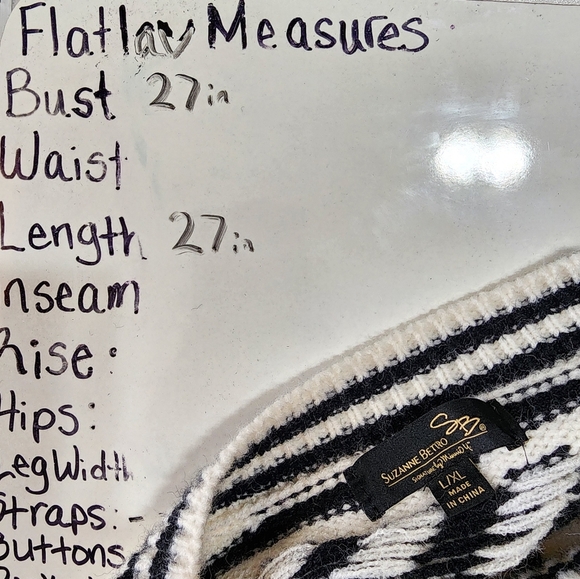 Flatlay Measures
Bust 27in
Waist
Length 27in
nseam
Rise:
Hips:
Leg Width
Straps: -
Buttons
SB®
SUZANNE BETRO
L/XL
MADE
IN CHINA